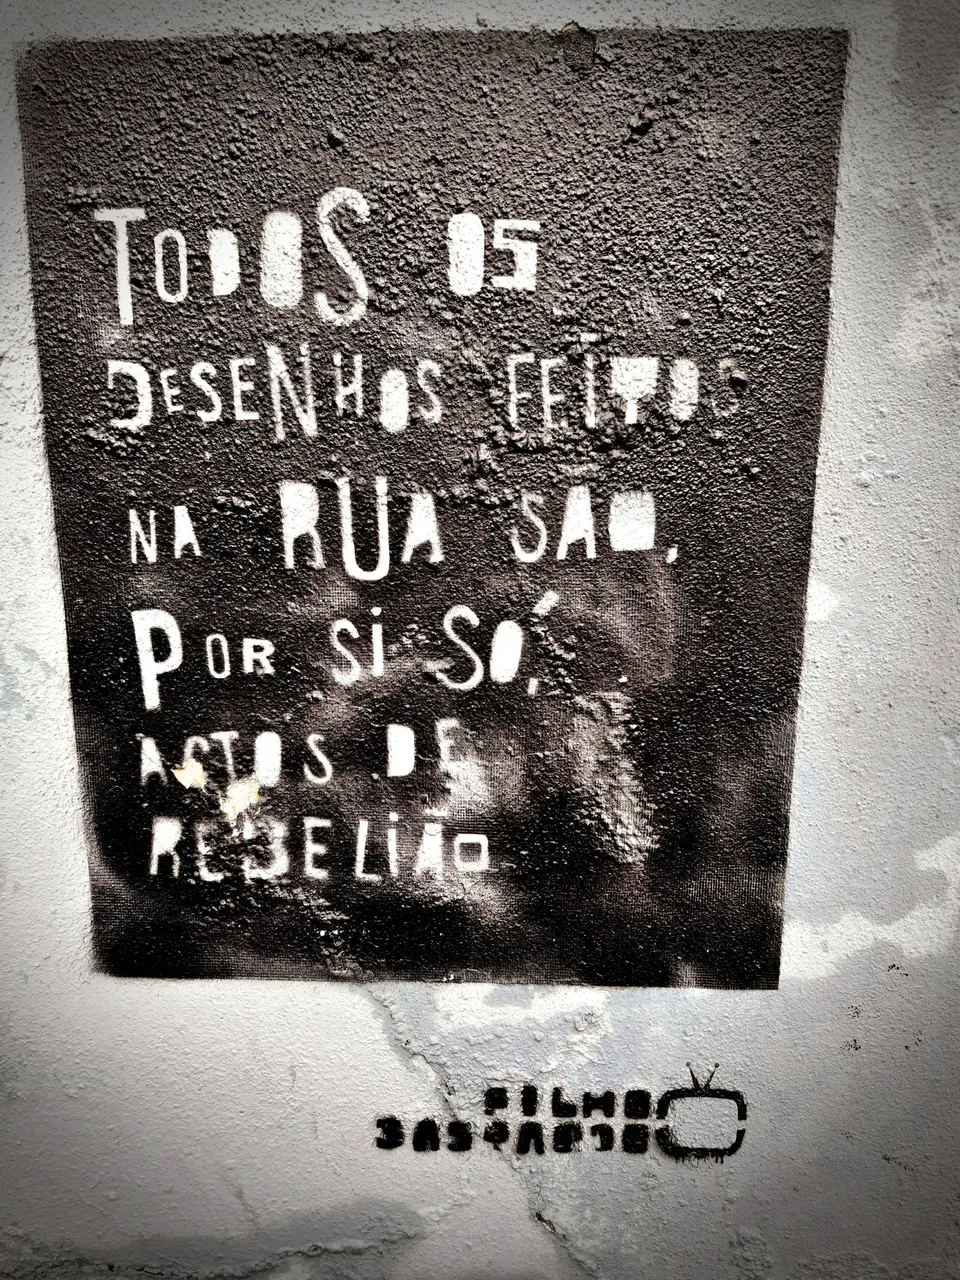 TODOS OS
DESENHOS FEITOS
NA RUA SÃO,
POR SI SÓ,
ACTOS DE
REBELIÃO
FILHO
BASTARDO